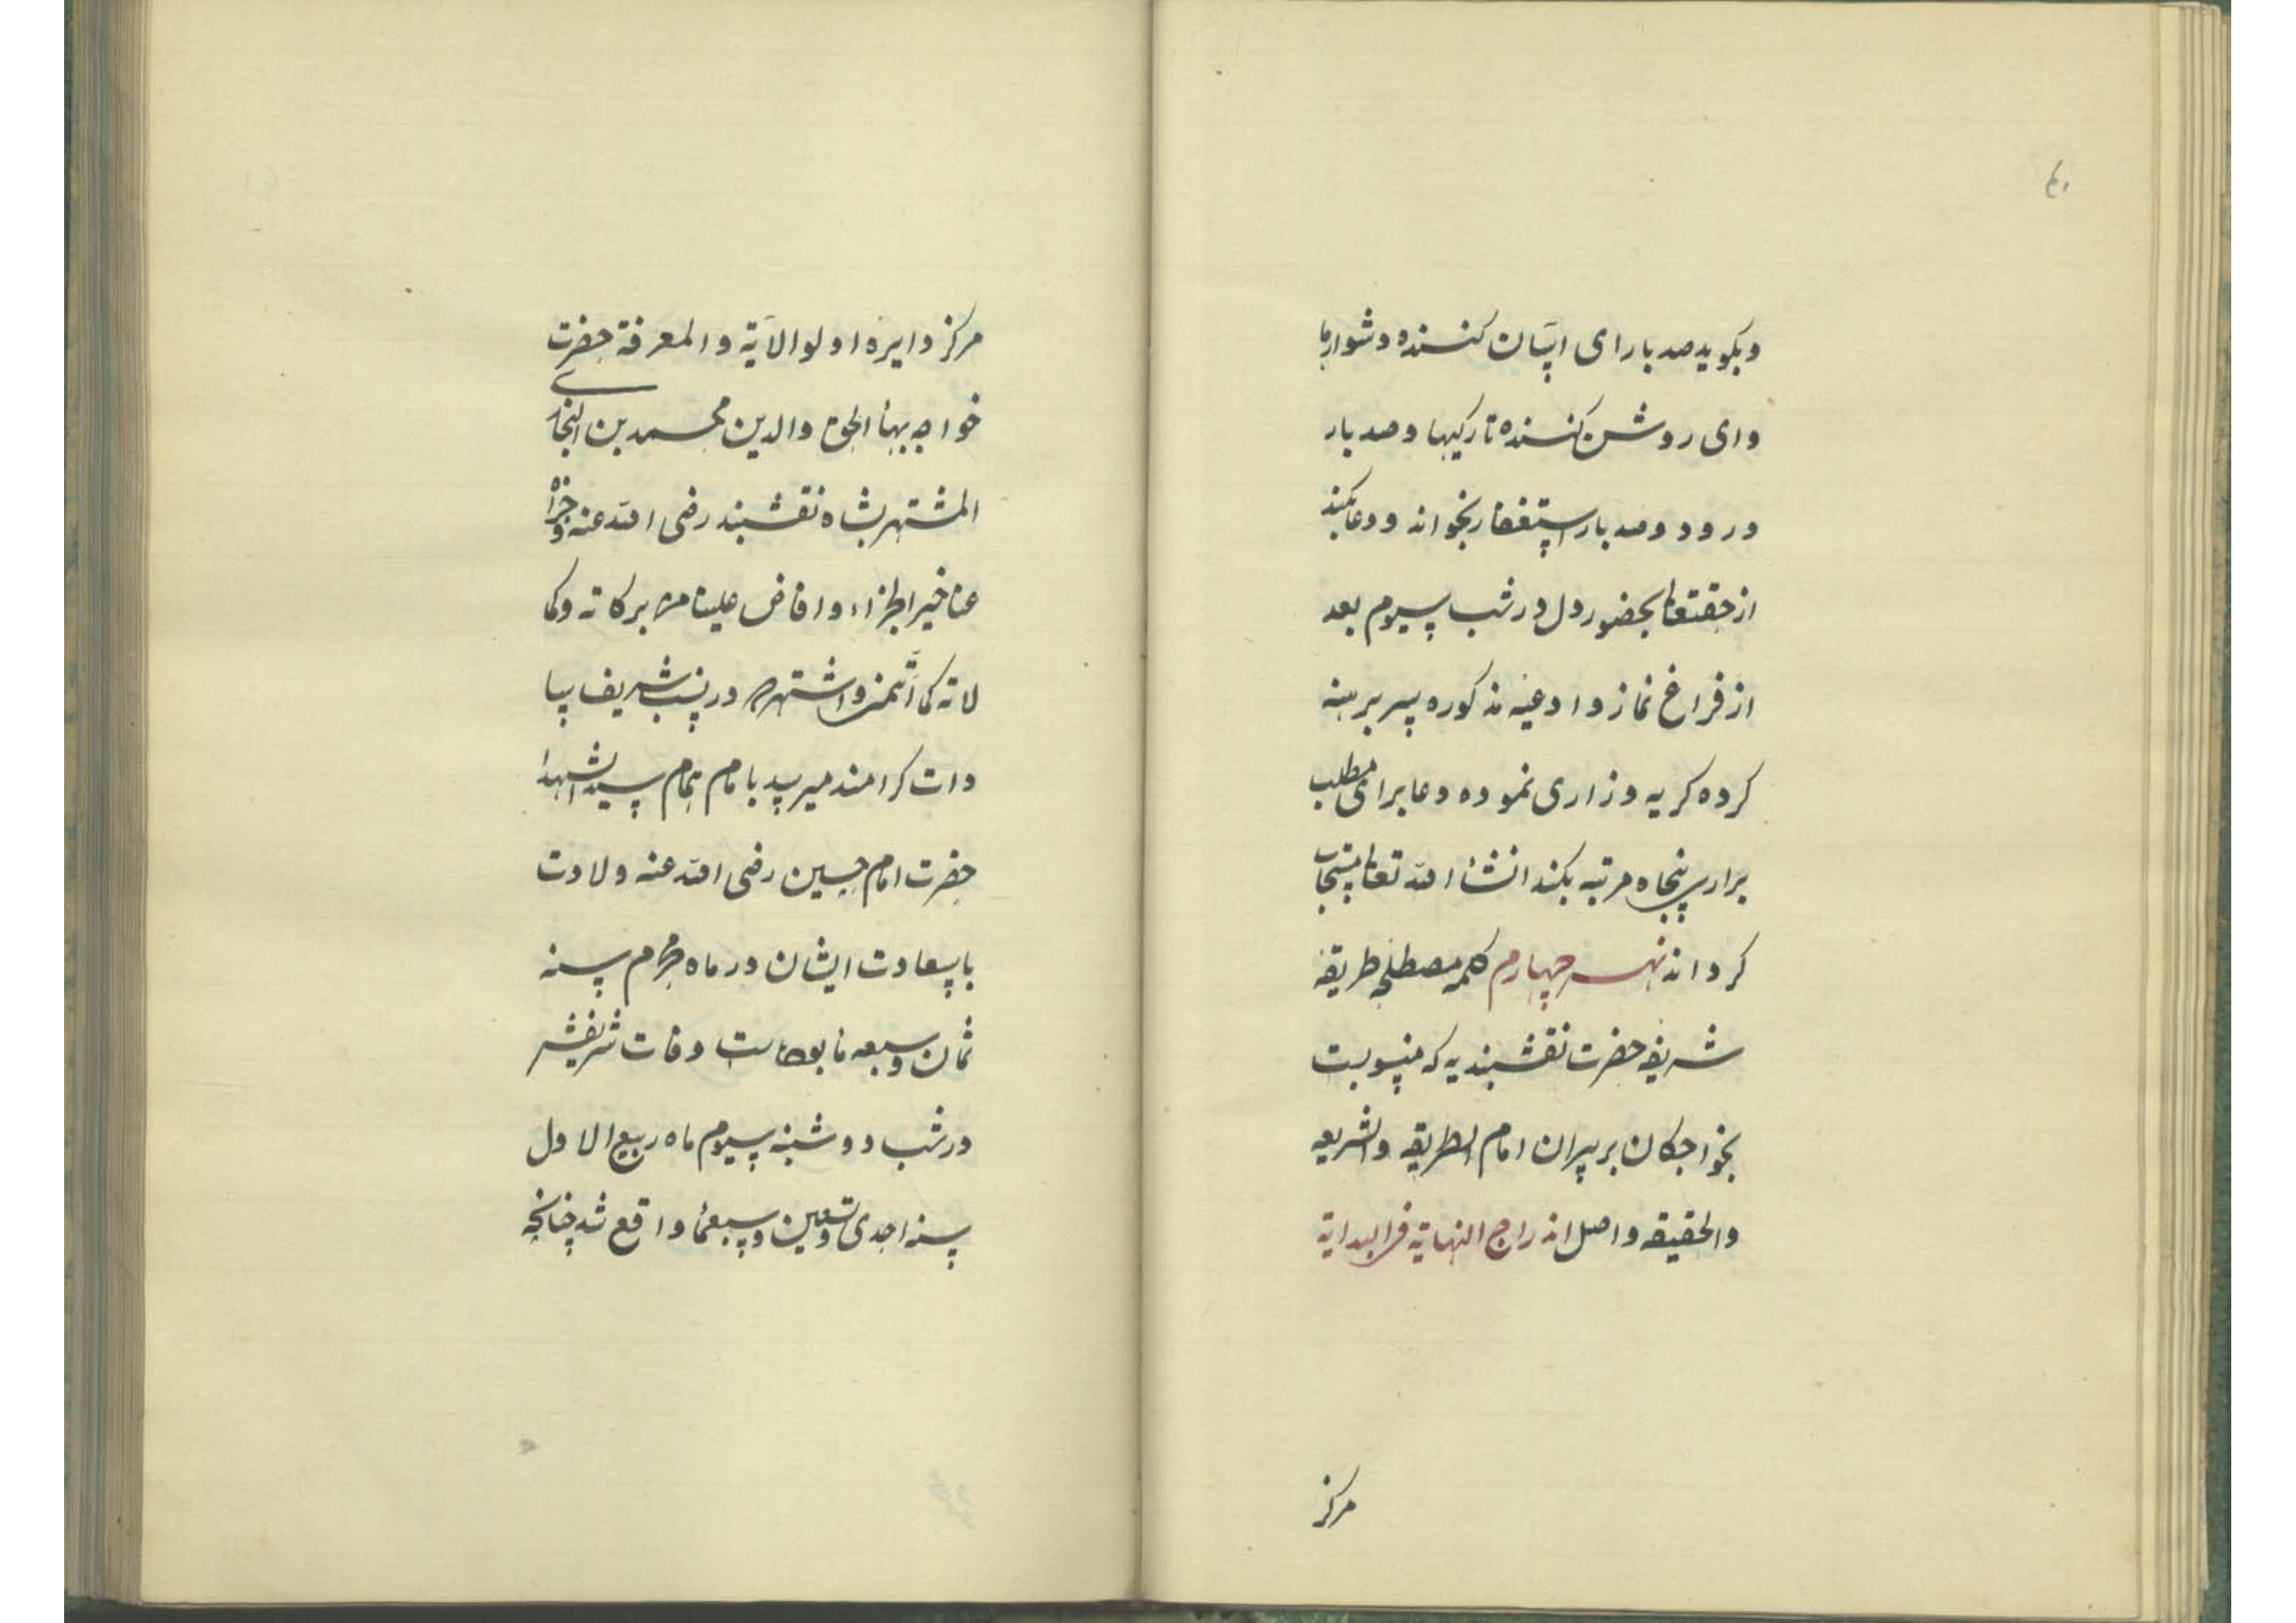 ۶۰
وبکوید صد بار ای اسان کننده دشوارها
وای روشن کننده تاریکیها وصد بار
درود وصد بار استغفار بخواند ودعا بکند
از حقتعا بحضور دل در شب سیوم بعد
از فراغ نماز وادعیه مذکوره سر برهنه
کرده کریه وزاری نموده دعا برای مطلب
برادر پنجاه مرتبه بکند انشاء الله تعا مستجاب
کرداند نهر چهارم کلمه مصطلحه طریقه
شریفه حضرت نقشبندیه که منسوبست
بخواجکان بر پیران امام الطریقه والشریعه
والحقیقه واصل اندراج النهایة فی البدایة
مرکز
مرکز دایره اولو الآیة والمعرفة حضرت
خواجه بهاء الحق والدین محمد بن البخاری
المشتهر بشاه نقشبند رضی الله عنه وجزاه
عنا خیر الجزاء وافاض علینا من برکاته وکما
لاته کما اثمن واشتهر در نسب شریف سا
دات کرامند میرسد بامام همام سید الشهدا
حضرت امام حسین رضی الله عنه ولادت
با سعادت ایشان در ماه محرم سنه
ثمان وسبعمایه است وفات شریفش
در شب دوشنبه سیوم ماه ربیع الاول
سنه احدی وتسعین وسبعمایه واقع شد چنانچه